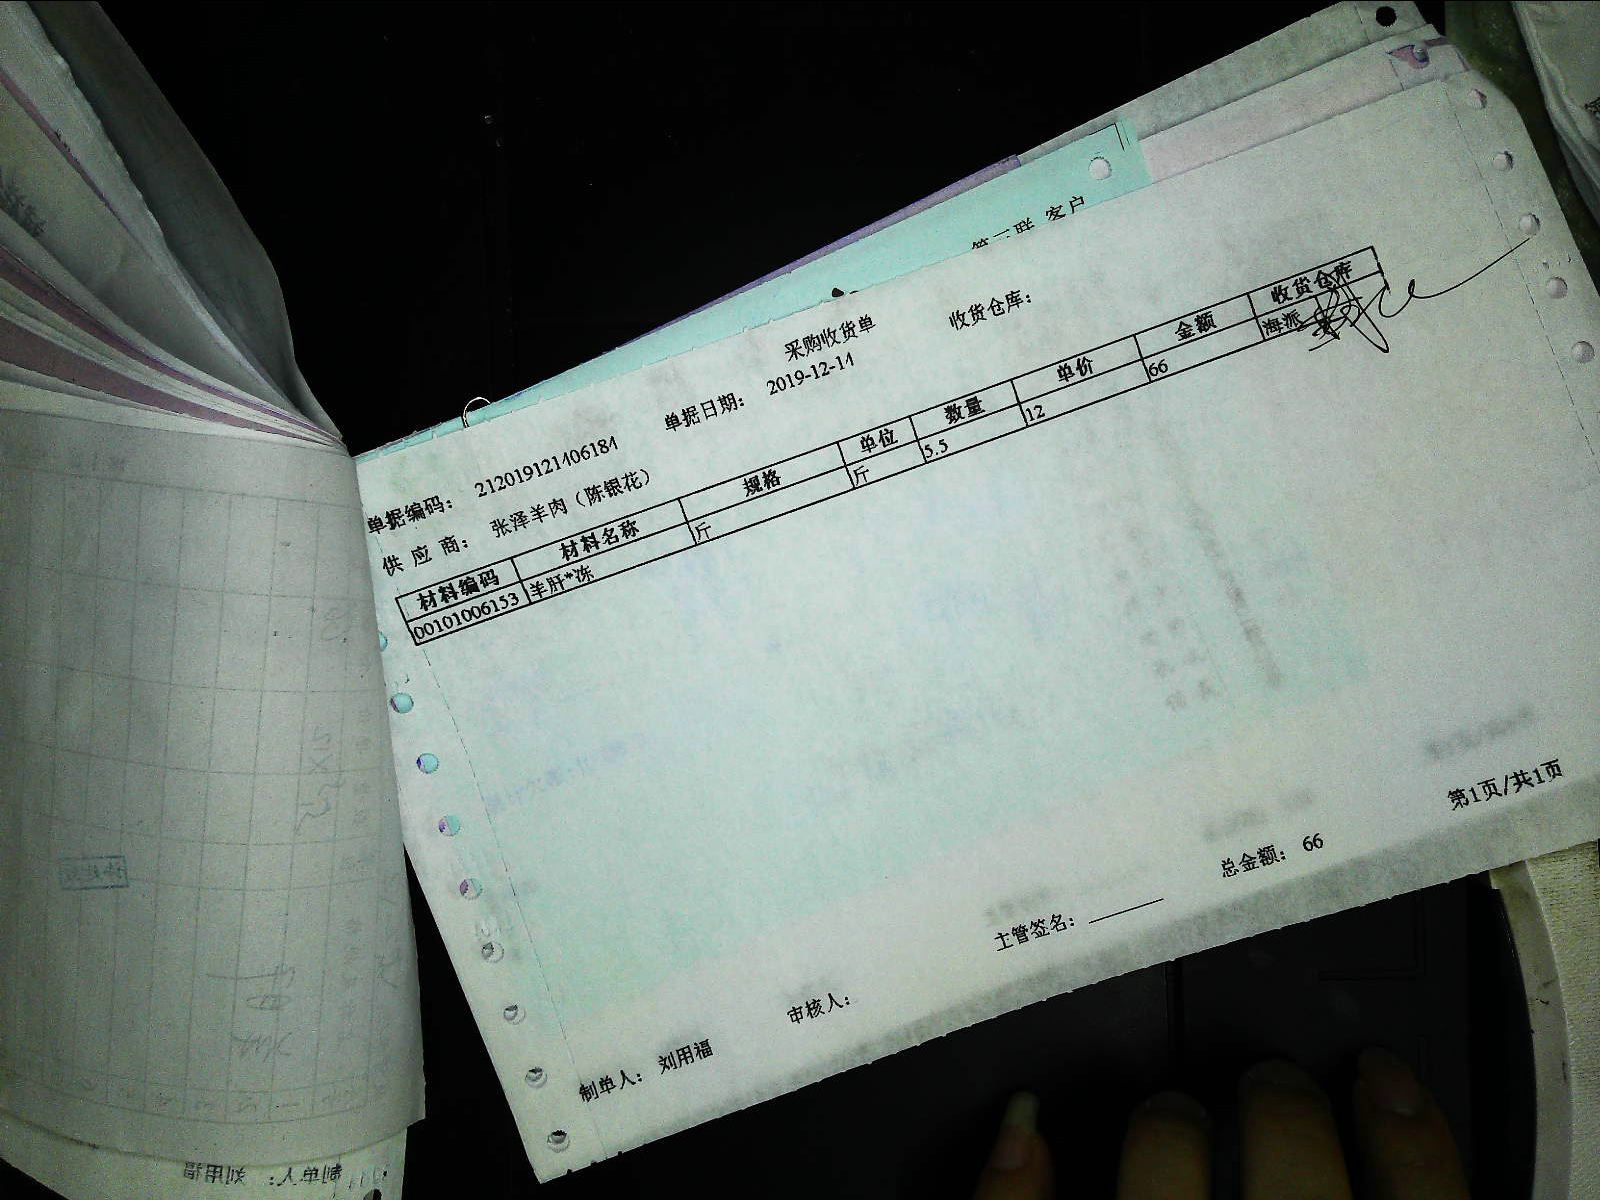 第二联 客户
采购收货单
收货仓库：
单据编码： 212019121406184 单据日期： 2019-12-14
供 应 商： 张泽羊肉（陈银花）
材料编码 材料名称 规格 单位 数量 单价 金额 收货仓库
00101006153 羊肝*冻 斤 斤 5.5 12 66 海派
第1页/共1页
总金额： 66
主管签名：
审核人：
制单人： 刘用福
制单人： 刘用福